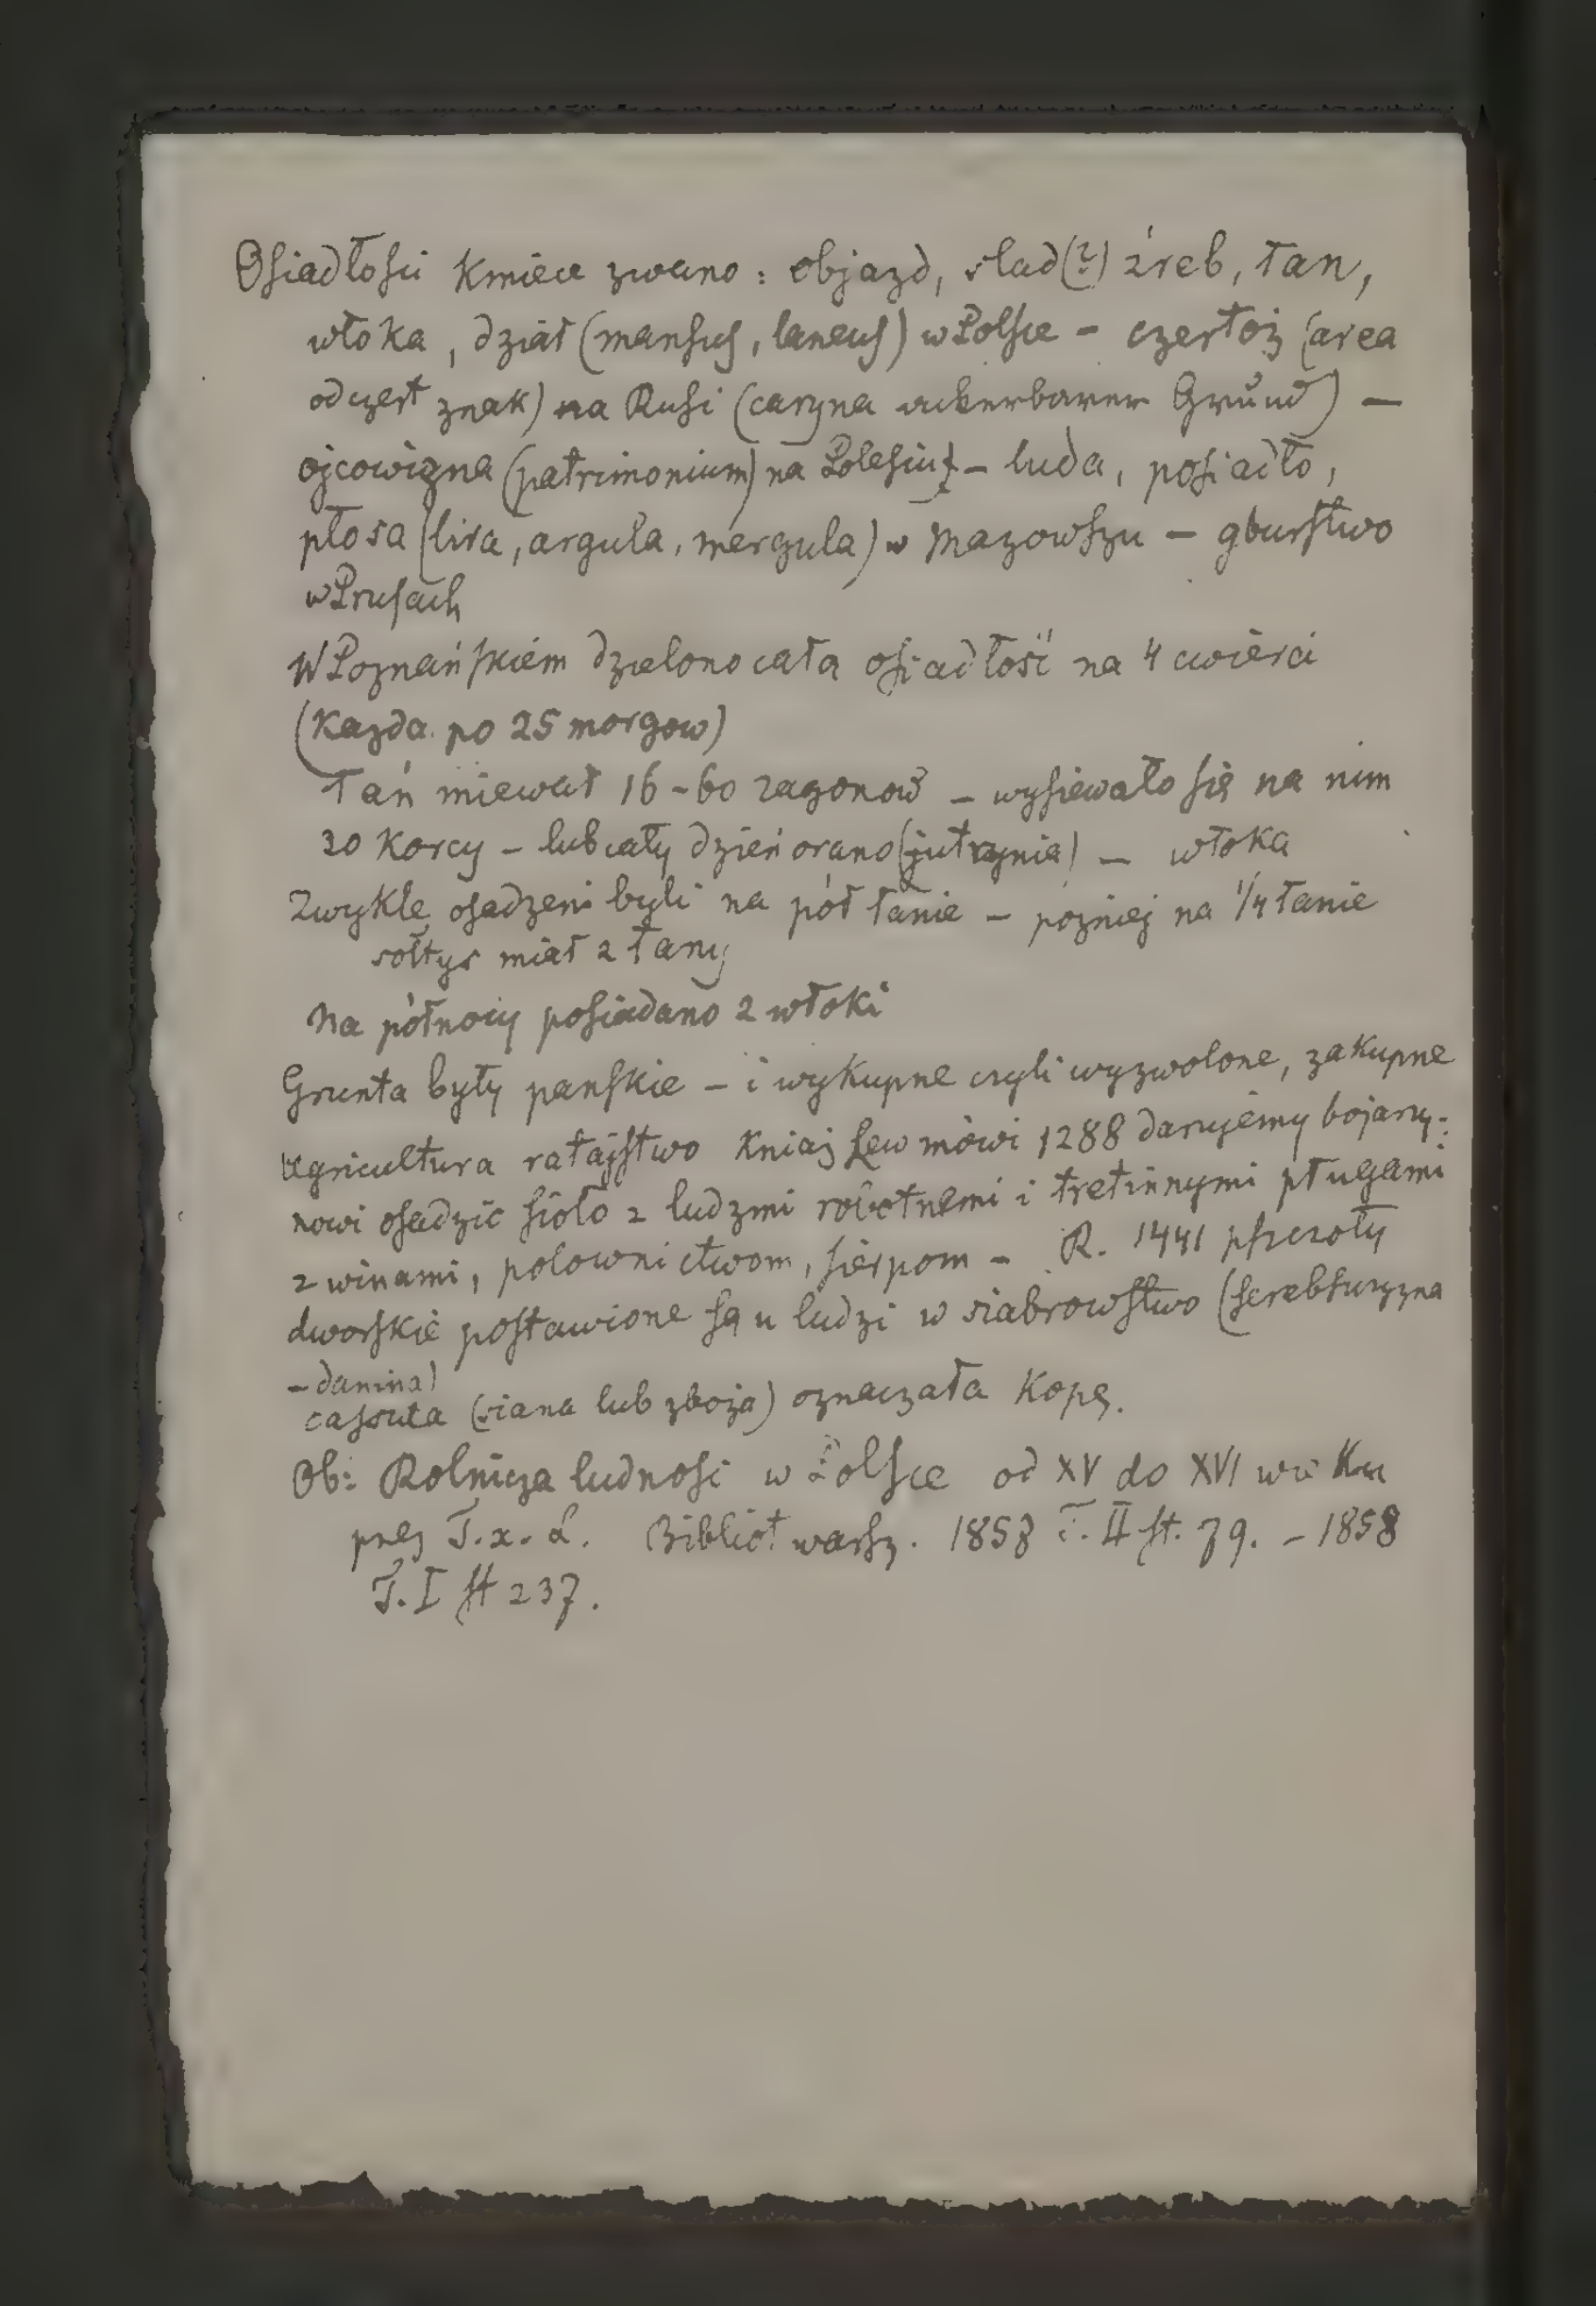 Osiadłości Kmiece zwano: objazd, slad(?) źreb, łan,
włoka, dział (mansus, laneus) w Polsce - czertoż (area
od czert znak) na Rusi (caryna ackerbarer Grund) -
ojcowizna (patrimonium) na Polesiu - luda, posiadło,
płosa (lira, argula, mergula) w Mazowszu - gburstwo
w Prusach
W Poznańskiem dzielono cała osiadłość na 4 cwierci
(Kazda po 25 morgow)
Łan miewał 16-60 zagonow - wysiewało się na nim
30 Korcy - lub cały dzień orano (jutrzynia) - włoka
Zwykle osadzeni byli na pół łanie - pózniej na 1/4 łanie
sołtys miał 2 łany
Na północy posiadano 2 włoki
Grunta były panskie - i wykupne czyli wyzwolone, zakupne
agricultura ratajstwo Kniaz Lew mówi 1288 darujemy bojary:
nowi osadzic sioło z ludzmi robotnemi i tretinnymi pługami
z winami, polownictwom, sierpom - R. 1441 pszczoły
dworskie postawione są u ludzi w siabrowstwo (serebsuzyzna
- danina)
cassuta (siana lub zboża) oznaczała Kopę.
Ob: Rolnicza ludnosc w Polsce od XV do XVI wieku
przez T. x. L. Bibliot warsz. 1857 T. II st. 79. - 1858
T. I st 237.